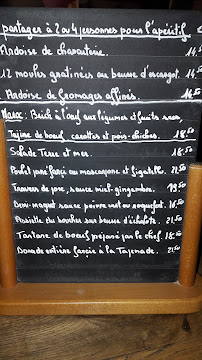 partager à 2 ou 4 personnes pour l'apéritif.
Ardoise de charcuterie. 14.50
12 moules gratinées au beurre d'escargot.
Ardoise de fromages affinés. 14.50
Maroc: Brick à l'œuf aux légumes et fruits secs.
Tajine de bœuf carottes et pois-chiches. 18.50
Salade Terre et mer. 18.50
Poulet jaune farci au mascarpone et figatelli. 21.50
Travers de porc, sauce miel-gingembre. 19.50
Demi-magret sauce poivre vert ou roquefort. 18.50
Assiette du boucher sauce beurre d'échalote. 21.50
Tartare de bœuf préparé par le chef. 18.50
Dorade entière farcie à la Tapenade. 21.50